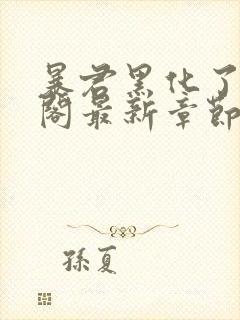 暴君黑化了
閣最新章節
孫夏